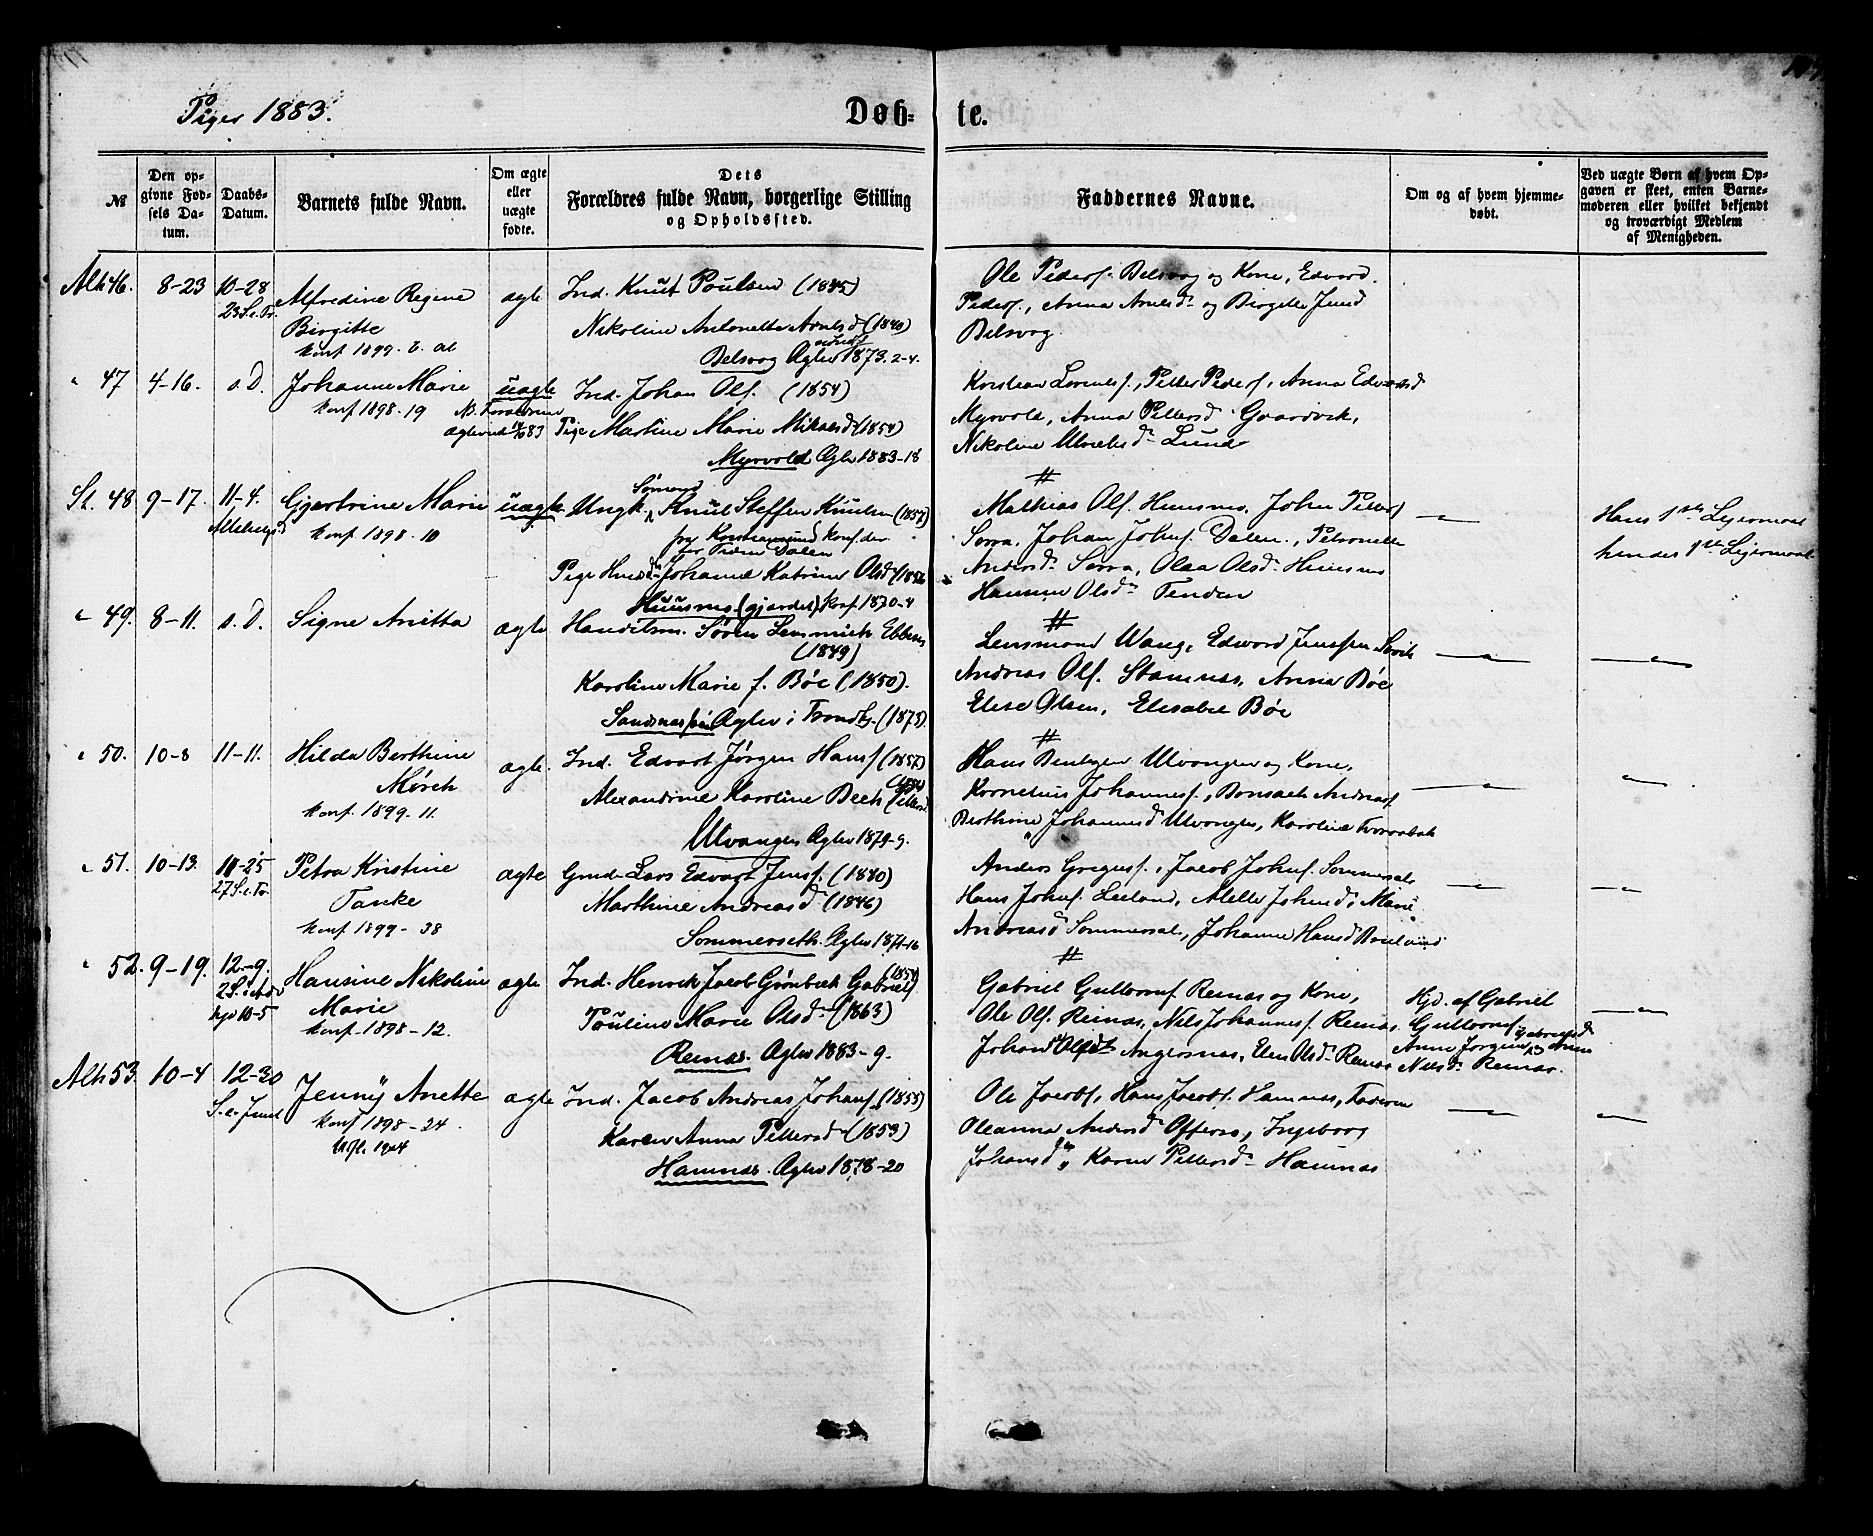 Piger 1883.
Døb- te.
№
Den op-
givne Fød-
sels Da-
tum.
Daabs-
Datum.
Barnets fulde Navn.
Om ægte
eller
uægte
fødte.
Dets
Forældres fulde Navn, borgerlige Stilling
og Opholdssted.
Faddernes Navne.
Om og af hvem hjemme-
døbt.
Ved uægte Børn af hvem Op-
gaven er skeet, enten Barne-
moderen eller hvilket bekjendt
og troværdigt Medlem
af Menigheden.
Alh 46. 8-23 10-28
23 S. e. Tr.
Alfredine Regine
Birgitte
konf 1899.
ægte
Ind. Knut Poulsen (1845)
Nikoline Antonette Arntsd (1840)
Belsvog Ægtev 1873. 2-4.
Ole Peders. Belsvog og Kone, Edvard
Peders., Anna Arntsd. og Birgitte
Belsvog
" 47 4-16. s. D.
Johanne Marie
konf 1898-19
uægte
NB. Forældrene
Ind. Johan Ols. (1854)
Pige Martine Marie Mikalsd (1854)
Myrvold Ægtv 1883-18
Kristian Lorents., Petter Peders., Anna Edvardsd
Myrvold, Anna Pettersd Gvardvik,
Nikoline Lund
St. 48 9-17. 11-4.
Allehelgsd
Gjertrine Marie
konf 1898-10
uægte
Ungk. Sømand Knut Steffen Knutsen (1857)
fra Kristiansund konf. der
Dalen
Pige Johanna Katrine Olsd (1856
Huusmo (gjordet) konf. 1870-4
#
Mathias Ols. Huusmo, Johan Petters
Serra, Johan Johns. Dalen, Petronelle
Andersd. Serra, Olaa Olsd. Huusmo
Hanna Olsd. Tenden
Hans 1ste Leiermaal
hendes 1ste Leiermaal
" 49. 8-11. s. D.
Signe Anitta
ægte
Handelsm. Søren Lemmich Ebbesen
(1849)
Karoline Marie f. Bøe (1850).
Ægtev i Trondhj. (1873)
#
Lensmand Wang, Edvard Jenssen
Andreas Ols. Stamnes, Anna Bøe
Elise Olsen, Elisabet Bøe
" 50. 10-8 11-11.
Hilda Berthine
Mørch
konf. 1899-11.
ægte.
Ind. Edvart Jørgen Hans. (1857)
Alexandrine Karoline Bech
Ulvangen Ægtev 1879-9.
#
Hans Bentzen Ulvangen og Kone,
Kornelius Johannes., Andreas.
Berthine Johannesd Ulvangen, Karoline
" 51. 10-13. 11-25
27 S. e. Tr
Petra Kristine
Tanke
konf. 1899-38
ægte
Gmd. Lars Edvart Jens. (1840)
Marthine Andreasd (1846)
Sommerseth. Ægtev 1871-16
Anders Gregus., Jacob Johns. Sommerset
Hans Johns. Leeland, Mette Johnsd., Marie
Andreasd Sommerset, Johanne Hansd
" 52. 9-19. 12-9.
2 S. i Adv
hjd 10-5
Hansine Nikoline
Marie
konf. 1898-12.
ægte
Ind. Henrik Jacob Grønbech Gabriels. (1854)
Pouline Marie Olsd. (1863)
Remas. Ægtev 1883-9.
#
Gabriel Guttorms. Remas og Kone,
Ole Ols. Remas, Nils Johannes. Remas,
Angersnes, Elen Olsd. Remas
Hjd. af Gabriel
Guttorms.
Nilsd. Remas.
Alh 53. 10-4 12-30
S. e. Juul
Jenny Anette
konf 1898-24.
Utfl. 1904
ægte
Ind. Jacob Andreas Johans. (1855)
Karen Anna Pettersd (1853)
Hamnes. Ægtev 1878-20
Ole Jacobs., Hans Jacobs. Hamnes,
Oleanna Andersd Offersø, Ingeborg
Johansd., Karen Pettersd. Hamnes